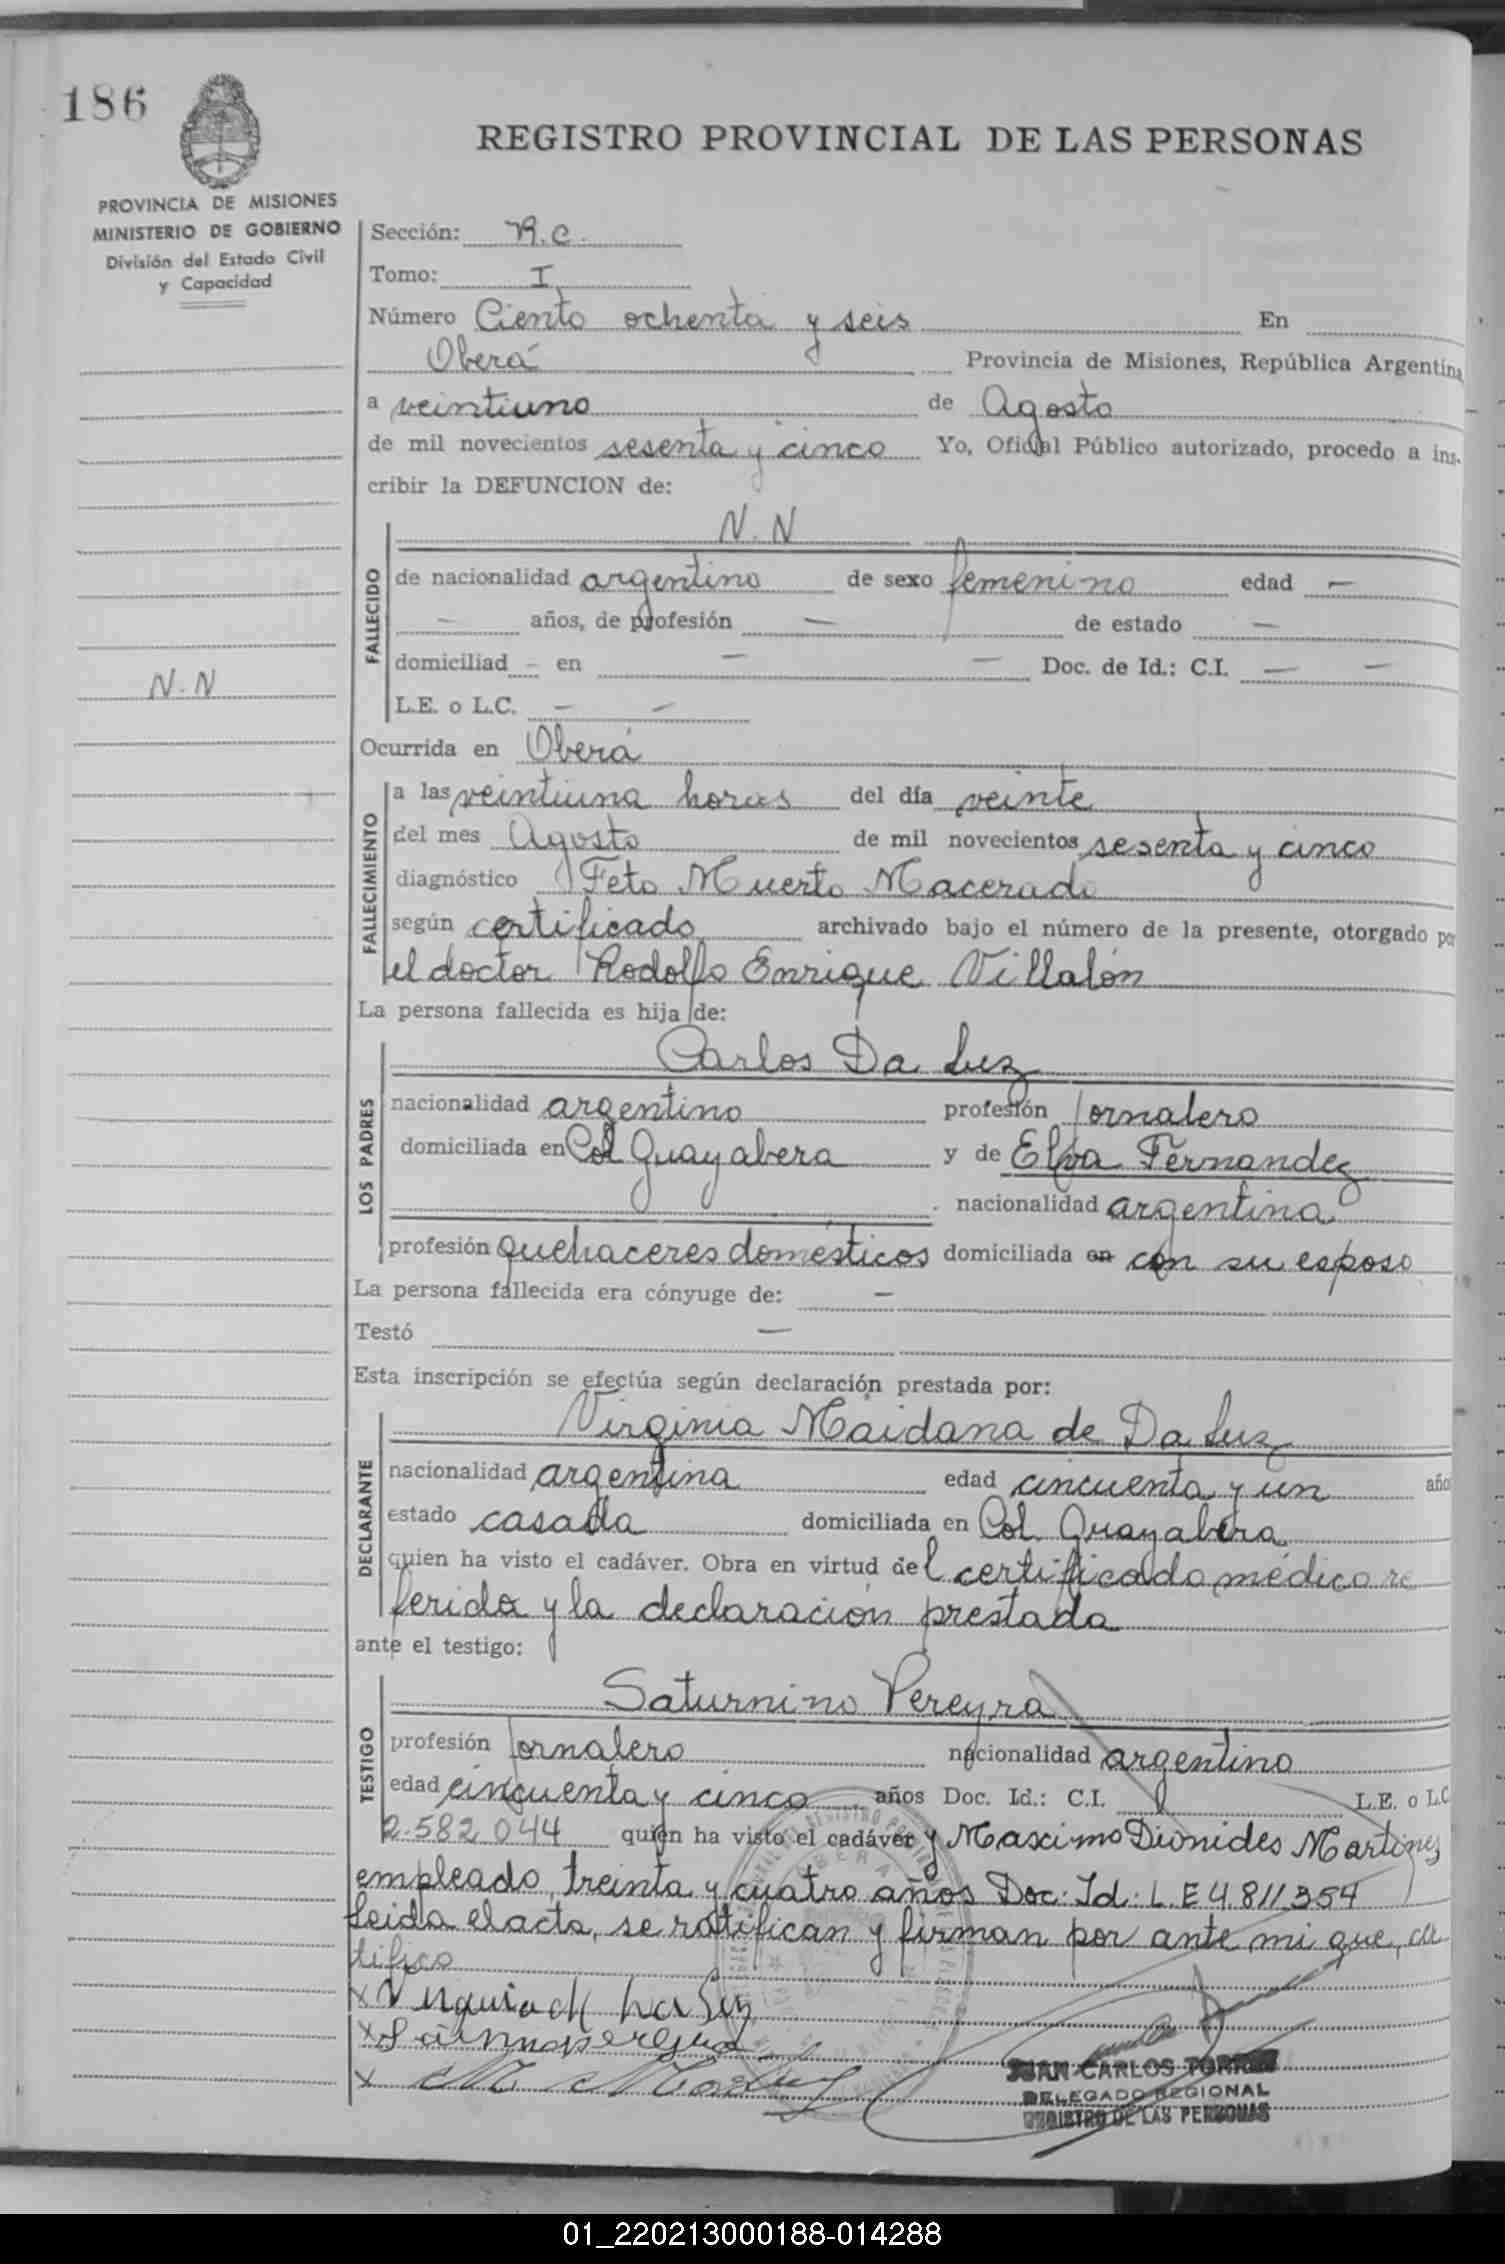 186
REGISTRO PROVINCIAL DE LAS PERSONAS
PROVINCIA DE MISIONES
MINISTERIO DE GOBIERNO
División del Estado Civil
y Capacidad
Sección: R.C.
Tomo: I
Número Ciento ochenta y seis En
Oberá Provincia de Misiones, República Argentina
a veintiuno de Agosto
de mil novecientos sesenta y cinco Yo, Oficial Público autorizado, procedo a ins-
cribir la DEFUNCION de:
N.N
FALLECIDO
de nacionalidad argentino de sexo femenino edad —
— años, de profesión — de estado —
domiciliad - en — — Doc. de Id.: C.I. — —
N-N
L.E. o L.C. — —
Ocurrida en Oberá
FALLECIMIENTO
a las veintiuna horas del día veinte
del mes Agosto de mil novecientos sesenta y cinco
diagnóstico Feto Muerto Macerado
según certificado archivado bajo el número de la presente, otorgado por
el doctor Rodolfo Enrique Villalón
La persona fallecida es hija de:
LOS PADRES
Carlos Da Luz
nacionalidad argentino profesión Jornalero
domiciliada en Col Guayabera y de Elva Fernandez
nacionalidad argentina
profesión quehaceres domésticos domiciliada en con su esposo
La persona fallecida era cónyuge de: —
Testó —
Esta inscripción se efectúa según declaración prestada por:
DECLARANTE
Virginia Maidana de Da Luz
nacionalidad argentina edad cincuenta y un año
estado casada domiciliada en Col. Guayabera
quien ha visto el cadáver. Obra en virtud del certificado médico re
ferido y la declaración prestada
ante el testigo:
TESTIGO
Saturnino Pereyra
profesión Jornalero nacionalidad argentino
edad cincuenta y cinco años Doc. Id.: C.I. L.E. o L.C
2.582.044 quien ha visto el cadáver y Maximo Dionides Martinez
empleado, treinta y cuatro años Doc: Id: L.E 4.811.354
Leida el acta, se ratifican y firman por ante mi que, cer
tifico
JUAN CARLOS TORRES
DELEGADO REGIONAL
REGISTRO DE LAS PERSONAS
01_220213000188-014288